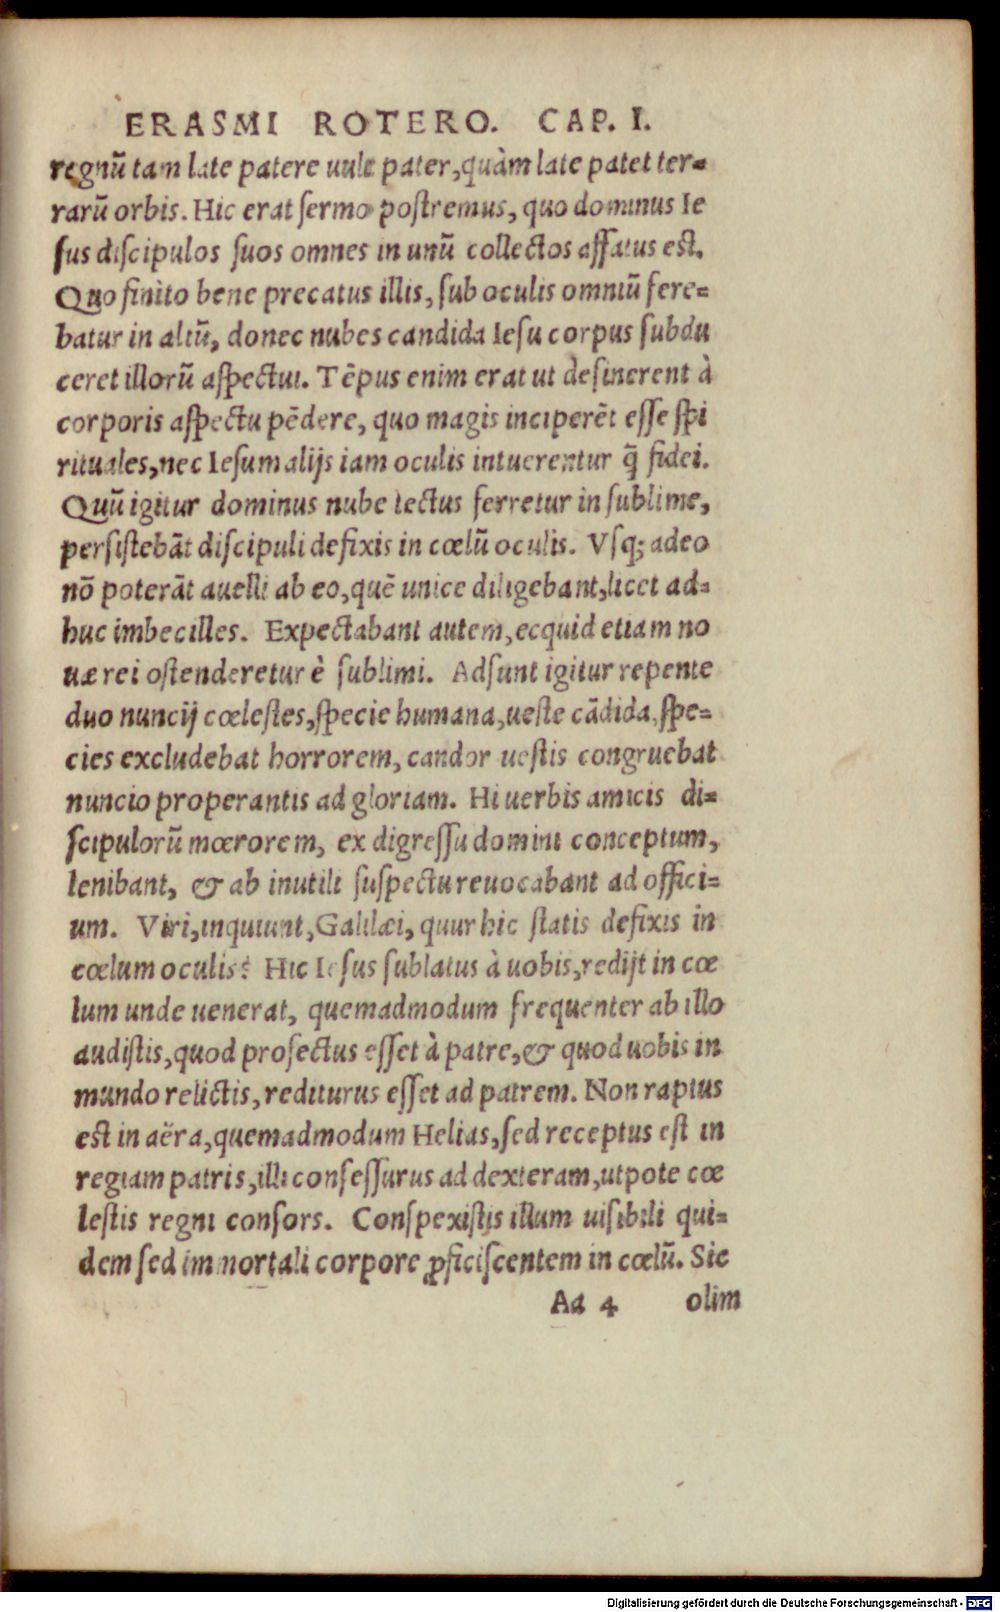 ERASMI ROTERO. CAP. I.
regnũ tam late patere uult pater, quàm late patet ter-
rarũ orbis. Hic erat sermo postremus, quo dominus Ie
sus discipulos suos omnes in unũ collectos affatus est.
Quo finito bene precatus illis, sub oculis omniũ fere-
batur in altũ, donec nubes candida Iesu corpus subdu
ceret illorũ aspectui. Tẽpus enim erat ut desinerent à
corporis aspectu pẽdere, quo magis inciperẽt esse spi
rituales, nec Iesum alijs iam oculis intuerentur q̃ fidei.
Quũ igitur dominus nube tectus ferretur in sublime,
persistebãt discipuli defixis in cœlũ oculis. Vsq; adeo
nõ poterãt auelli ab eo, quẽ unice diligebant, licet ad-
huc imbecilles. Expectabant autem, ecquid etiam no
uæ rei ostenderetur è sublimi. Adsunt igitur repente
duo nuncij cœlestes, specie humana, ueste cãdida, spe-
cies excludebat horrorem, candor uestis congruebat
nuncio properantis ad gloriam. Hi uerbis amicis di-
scipulorũ mœrorem, ex digressu domini conceptum,
lenibant, & ab inutili suspectu reuocabant ad offici-
um. Viri, inquiunt, Galilæi, quur hic statis defixis in
cœlum oculis? Hic Iesus sublatus à uobis, redijt in cœ
lum unde uenerat, quemadmodum frequenter ab illo
audistis, quod profectus esset à patre, & quod uobis in
mundo relictis, rediturus esset ad patrem. Non raptus
est in aëra, quemadmodum Helias, sed receptus est in
regiam patris, illi confessurus ad dexteram, utpote cœ
lestis regni consors. Conspexistis illum uisibili qui-
dem sed immortali corpore ꝓficiscentem in cœlũ. Sic
Aa 4 olim
Digitalisierung gefördert durch die Deutsche Forschungsgemeinschaft - DFG